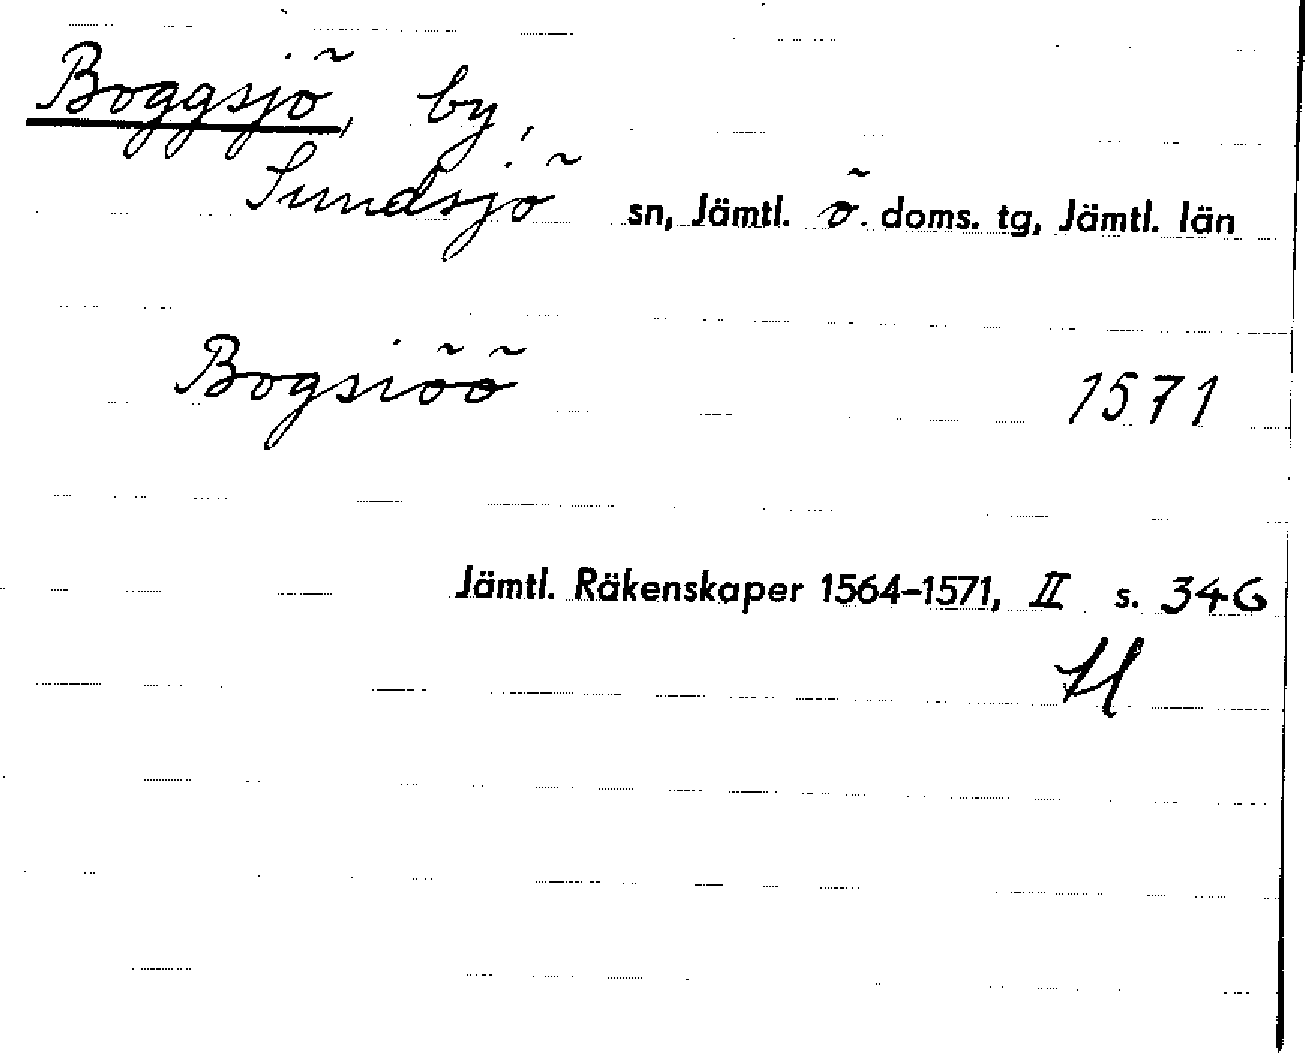 Boggsjö, by,
Sundsjö sn, Jämtl. ö. doms. tg, Jämtl. län
Bogsiöö 1571
Jämtl. Räkenskaper 1564-1571, II s. 346
H